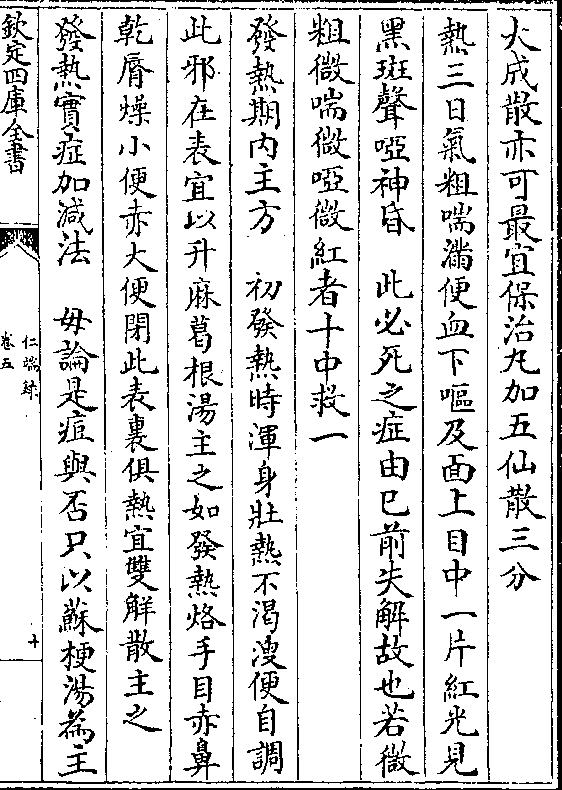 大成散亦可最宜保治丸加五仙散三分
熱三日氣粗喘滿便血下嘔及面上目中一片紅光見
黑斑聲啞神昏　此必死之症由已前失解故也若微
粗微喘微啞微紅者十中救一
發熱期内主方　初發熱時渾身壯熱不渴溲便自調
此邪在表宜以升麻葛根湯主之如發熱烙手目赤鼻
乾脣燥小便赤大便閉此表裏俱熱宜雙解散主之
發熱實症加減法　毋論是痘與否只以蘇梗湯為主
欽定四庫全書
仁端錄
卷五
十